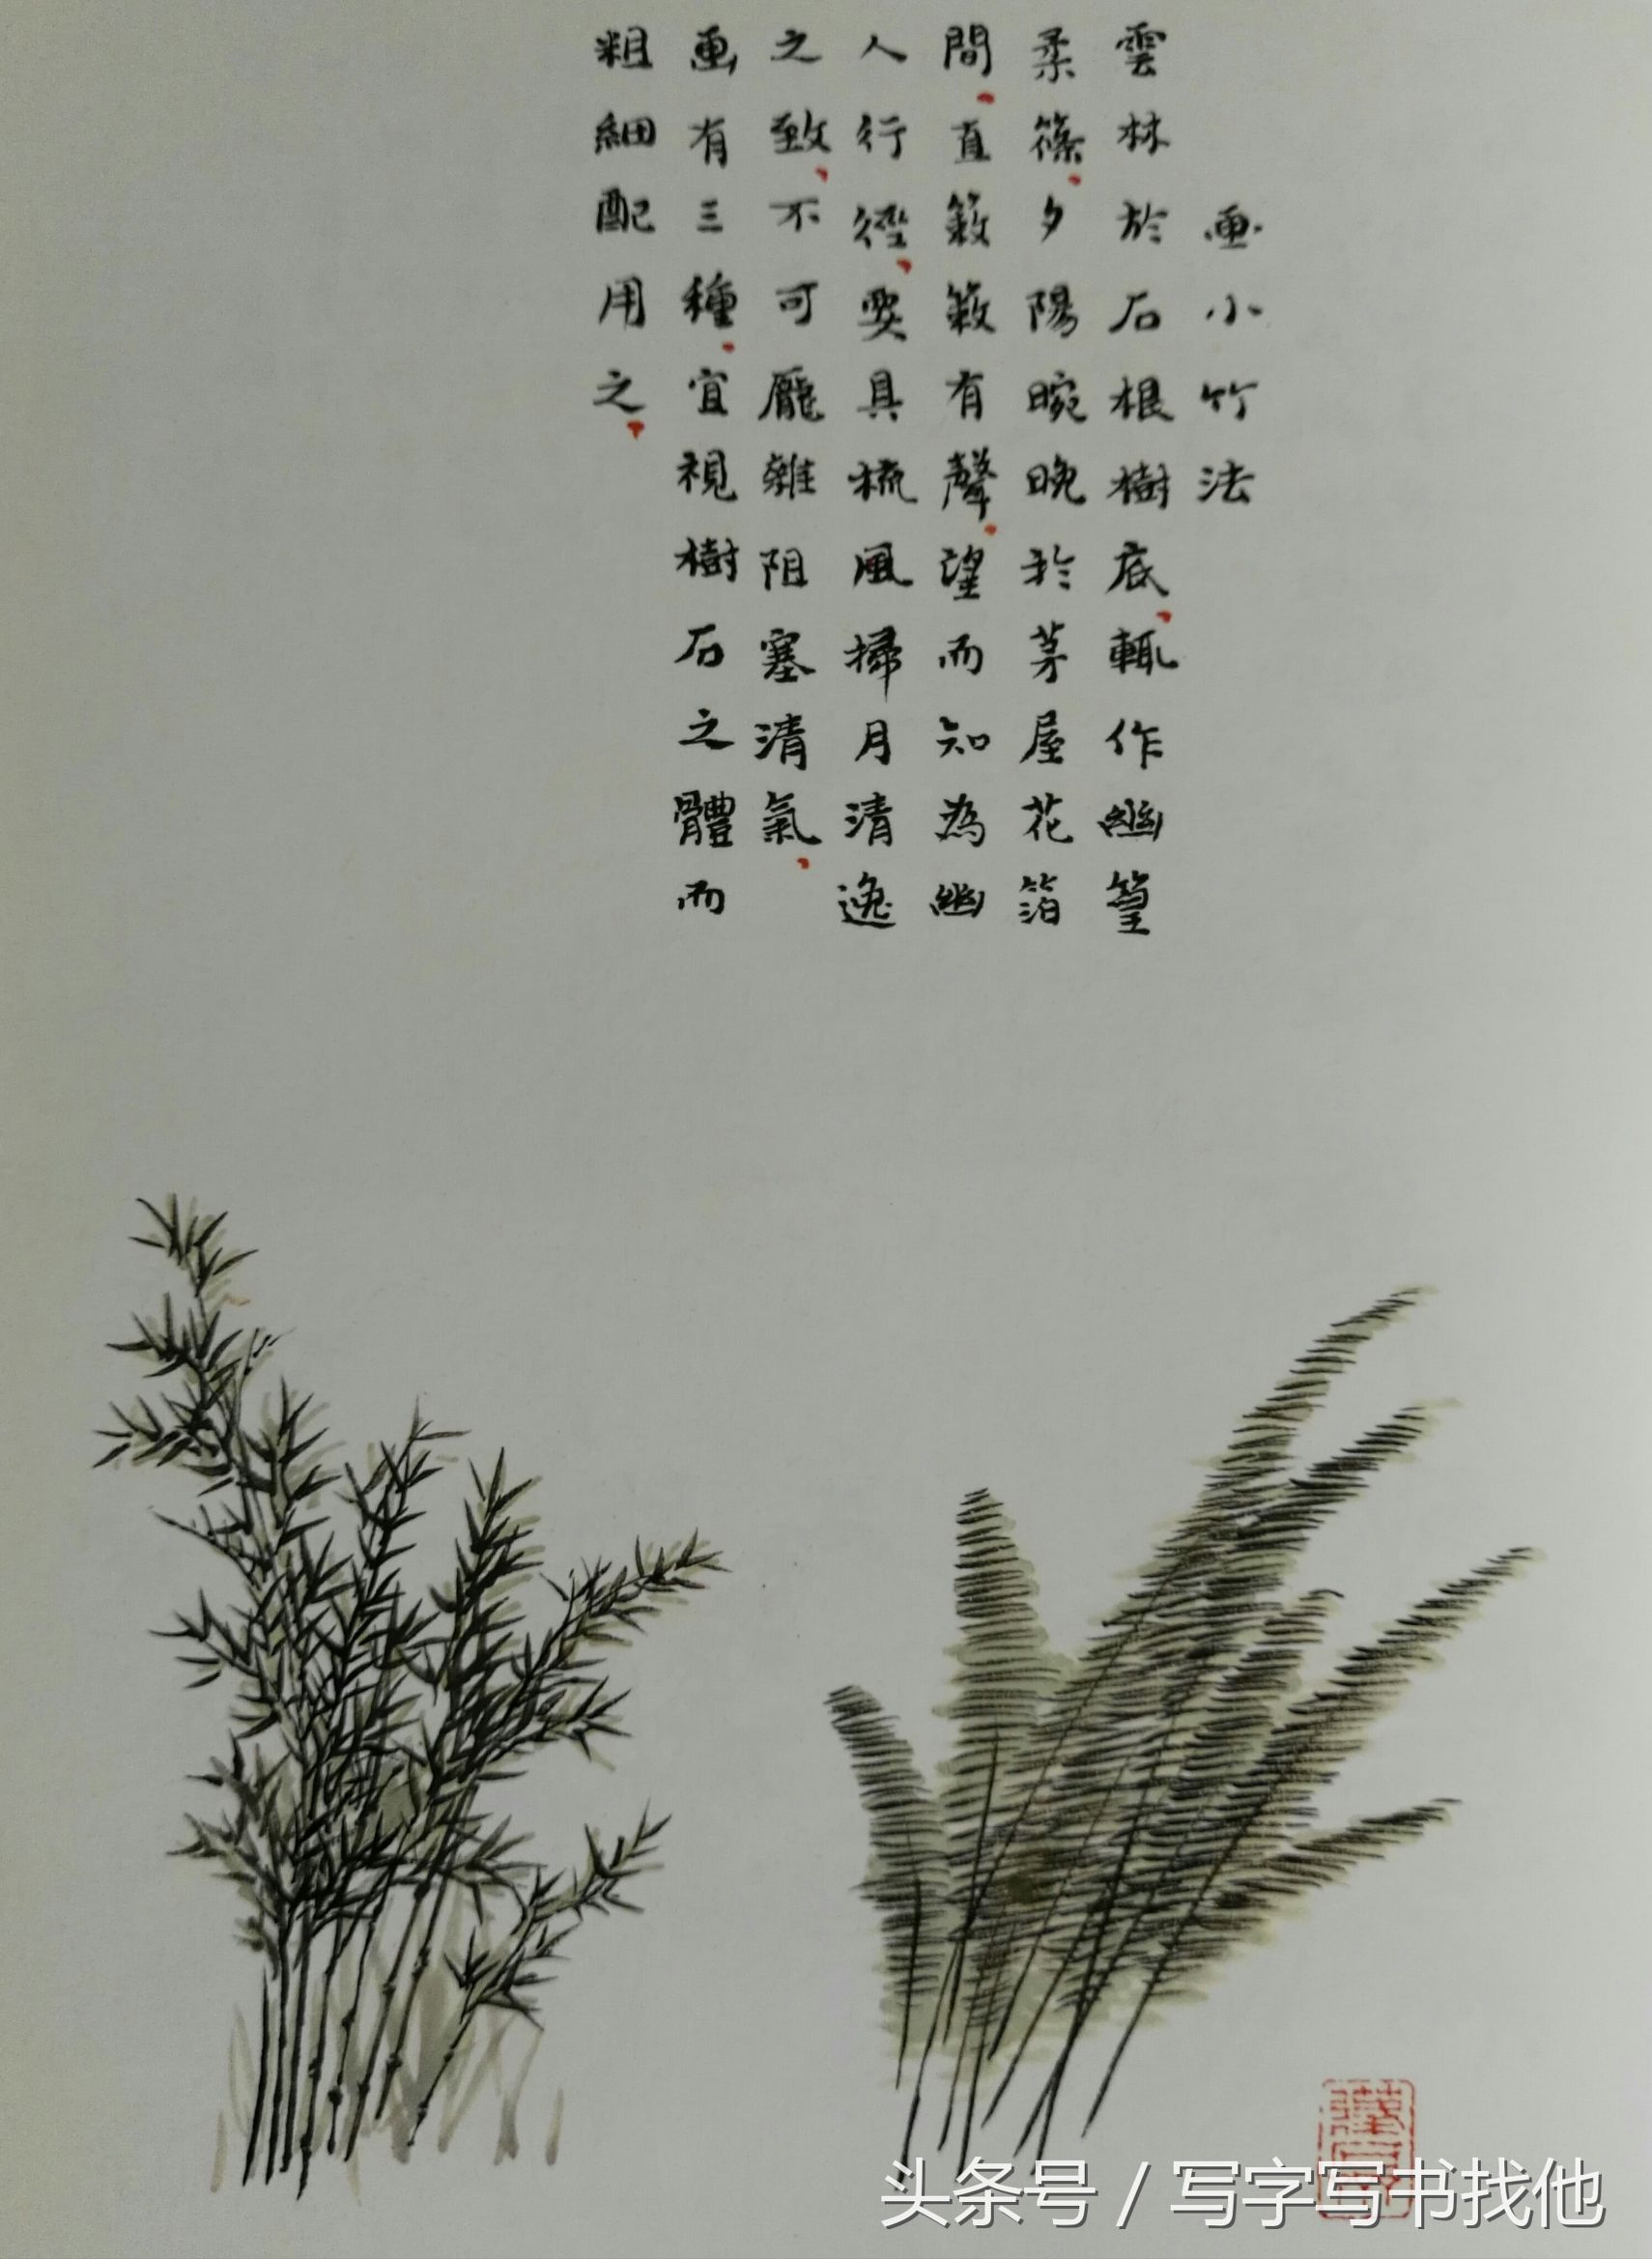 画小竹法
雲林於石根樹底輒作幽篁
柔篠夕陽晼晚於茅屋花箔
間直簌簌有聲望而知為幽
人行徑要具梳風掃月清逸
之致不可龐雜阻塞清氣
画有三種宜視樹石之體而
粗細配用之
头条号 / 写字写书找他